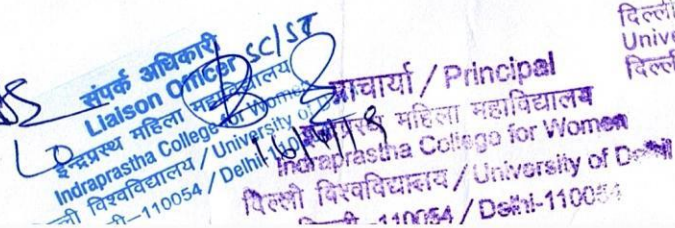 संपर्क अधिकारी
Liaison Officer SC/ST
इन्द्रप्रस्थ महिला महाविद्यालय
Indraprastha College for Women
विश्वविद्यालय / University of
110054 / Delhi
LO
प्राचार्या / Principal
महिला महाविद्यालय
Indraprastha College for Women
दिल्ली विश्वविद्यालय / University of Delhi
110054 / Delhi-110054
दिल्ली
Unive
दिल्ल